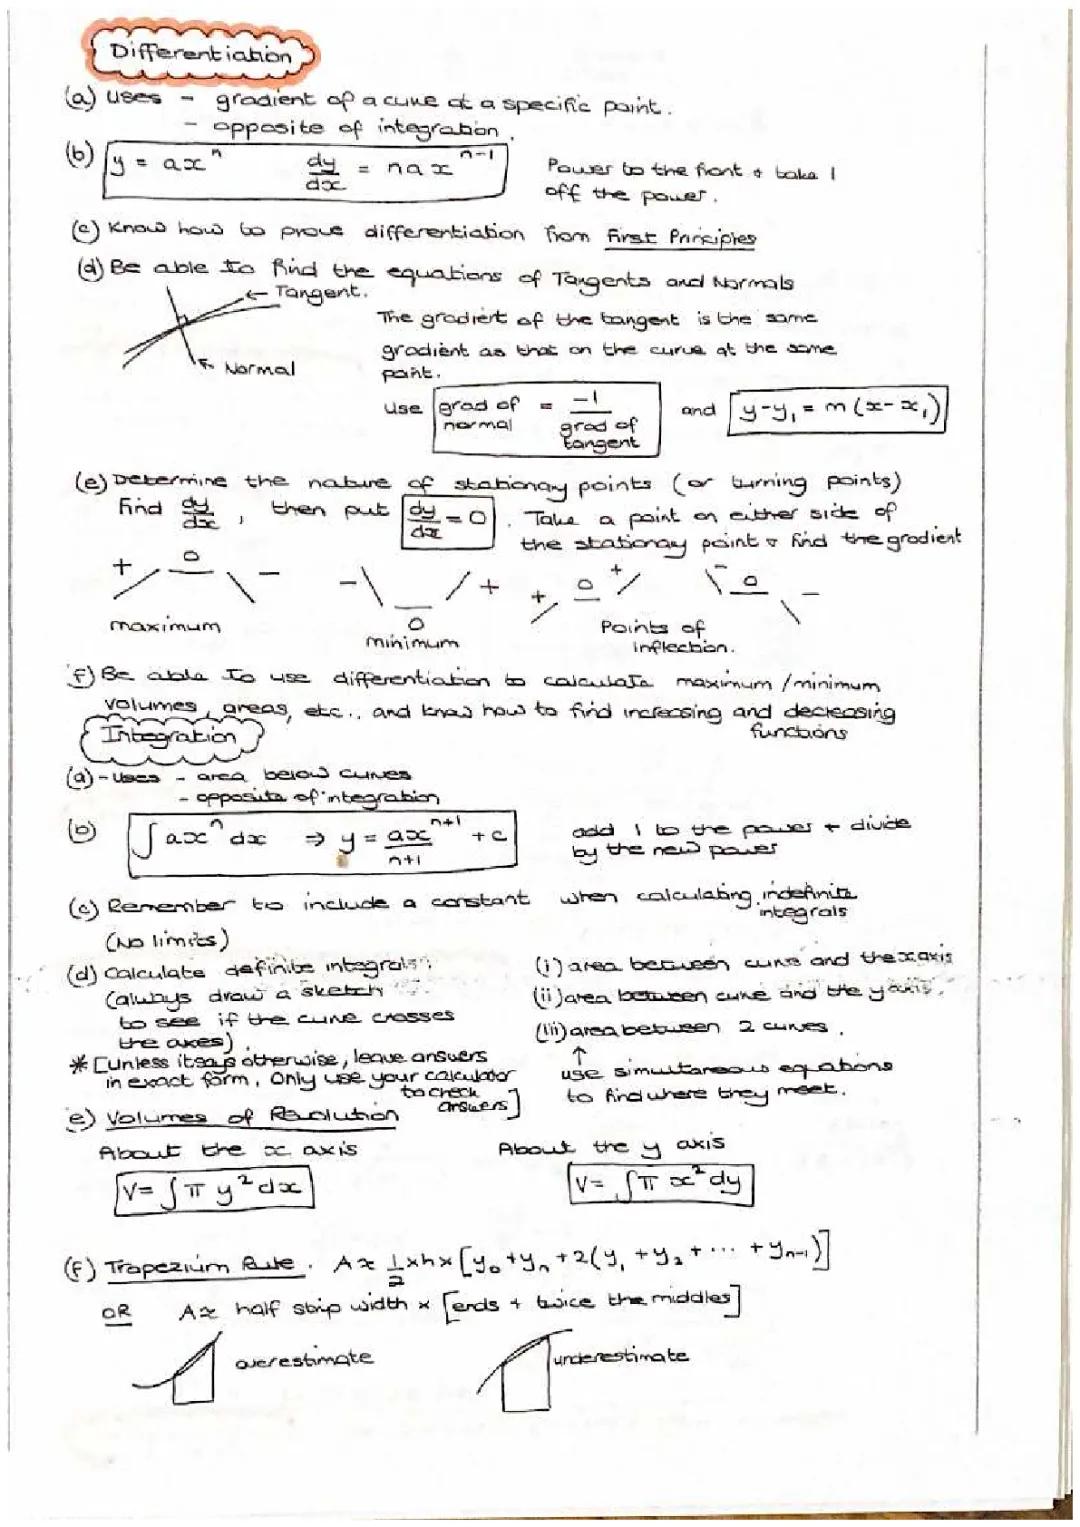 Differentiation
(a) Uses - gradient of a curve at a specific point.
- opposite of integration.
(b) y = axⁿ dy/dx = naxⁿ⁻¹ Power to the front & take 1
off the power.
(c) Know how to prove differentiation from First Principles
(d) Be able to find the equations of Tangents and Normals
← Tangent.
The gradient of the tangent is the same
gradient as that on the curve at the same
point.
Normal
Use grad of normal = -1/grad of tangent and y-y₁ = m(x-x₁)
(e) Determine the nature of stationary points (or turning points)
find dy/dx, then put dy/dx = 0. Take a point on either side of
the stationary point & find the gradient
+ 0 - - 0 + + 0 + - 0 -
maximum
minimum
Points of
inflection.
f) Be able to use differentiation to calculate maximum/minimum
volumes, areas, etc., and know how to find increasing and decreasing
functions
Integration
(a) - Uses - area below curves
- opposite of integration
(b) ∫axⁿ dx ⇒ y = axⁿ⁺¹/n+1 + c add 1 to the power + divide
by the new power
(c) Remember to include a constant when calculating indefinite
integrals
(No limits)
(d) Calculate definite integrals:
(always draw a sketch
to see if the curve crosses
the axes).
(i) area between curve and the x axis
(ii) area between curve and the y axis.
(iii) area between 2 curves.
↑
use simultaneous equations
to find where they meet.
* [unless it says otherwise, leave answers
in exact form. Only use your calculator
to check
answers]
e) Volumes of Revolution
About the x axis About the y axis
V = ∫π y² dx V = ∫π x² dy
(f) Trapezium Rule. A ≈ 1/2 × h × [y₀ + yₙ + 2(y₁ + y₂ + ... + yₙ₋₁)]
OR A ≈ half strip width × [ends + twice the middles]
overestimate underestimate